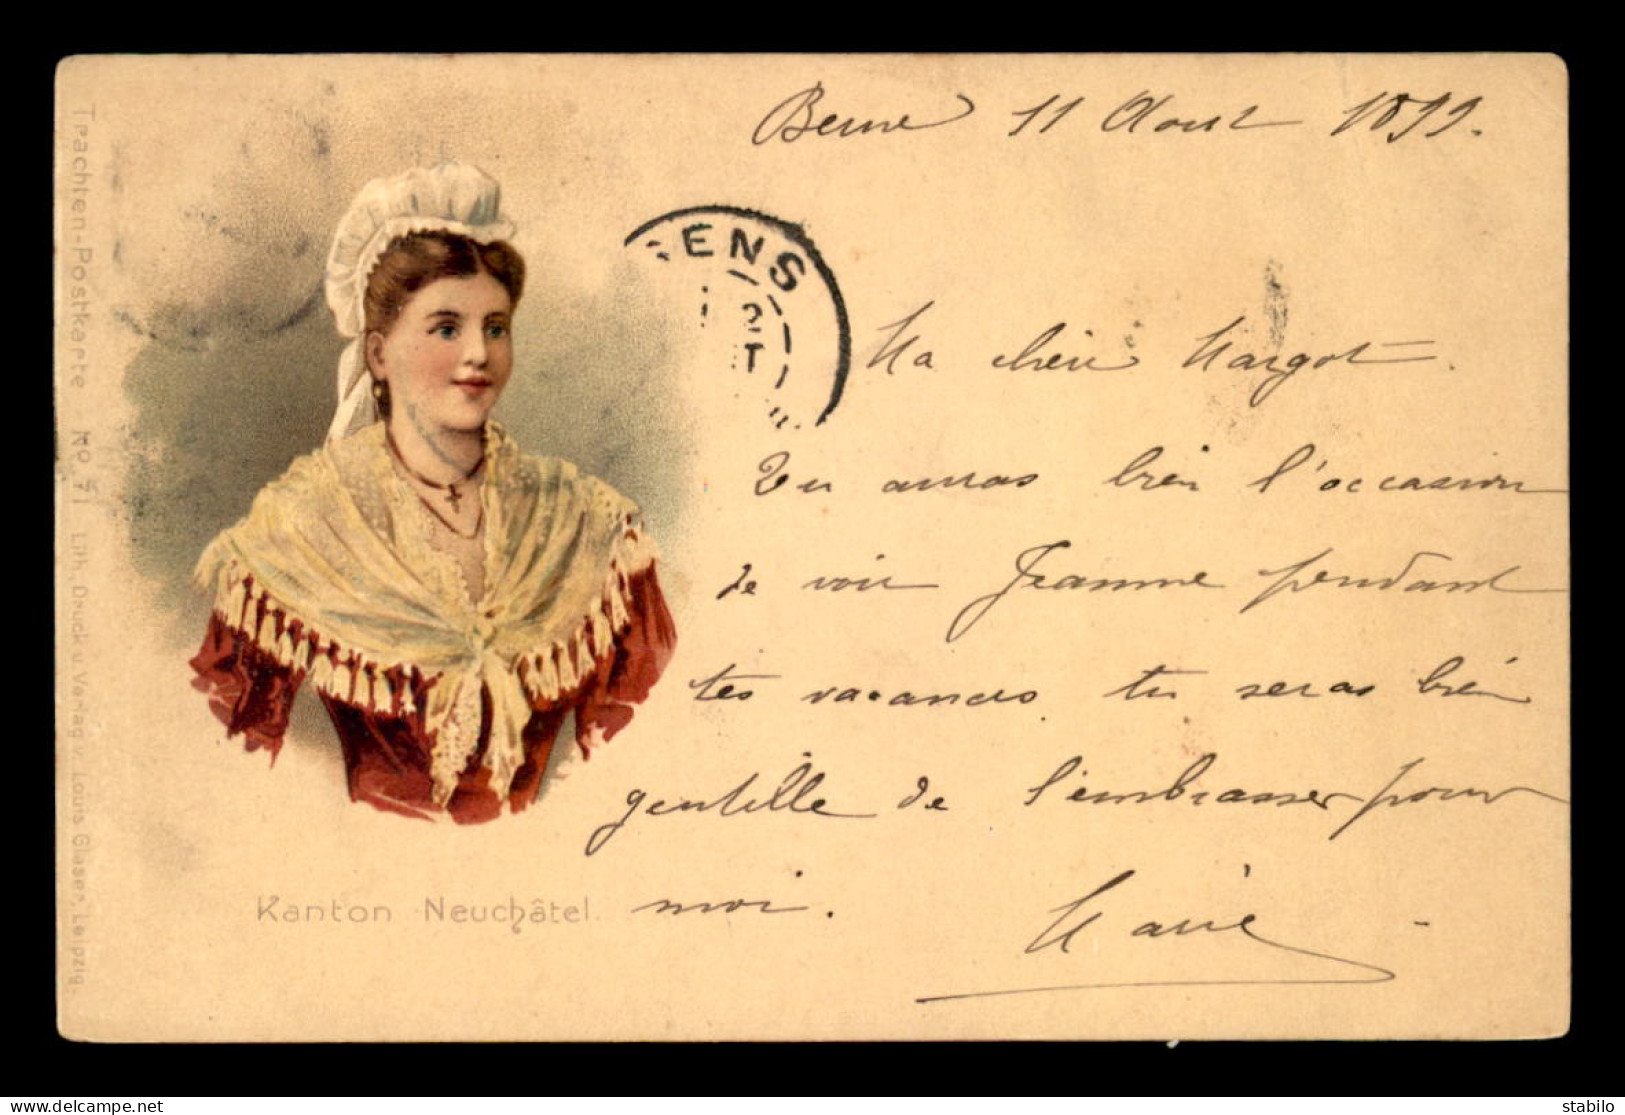 Berne 11 Aout 1899.
Ma chère Margot.
Tu auras bien l'occasion
de voir Jeanne pendant
tes vacances. tu seras bien
gentille de l'embrasser pour
moi.
Marie
ENS
2
T
Kanton Neuchâtel.
Trachten-Postkarte - No 71 Lith. Druck u. Verlag v. Louis Glaser, Leipzig.
stabilo